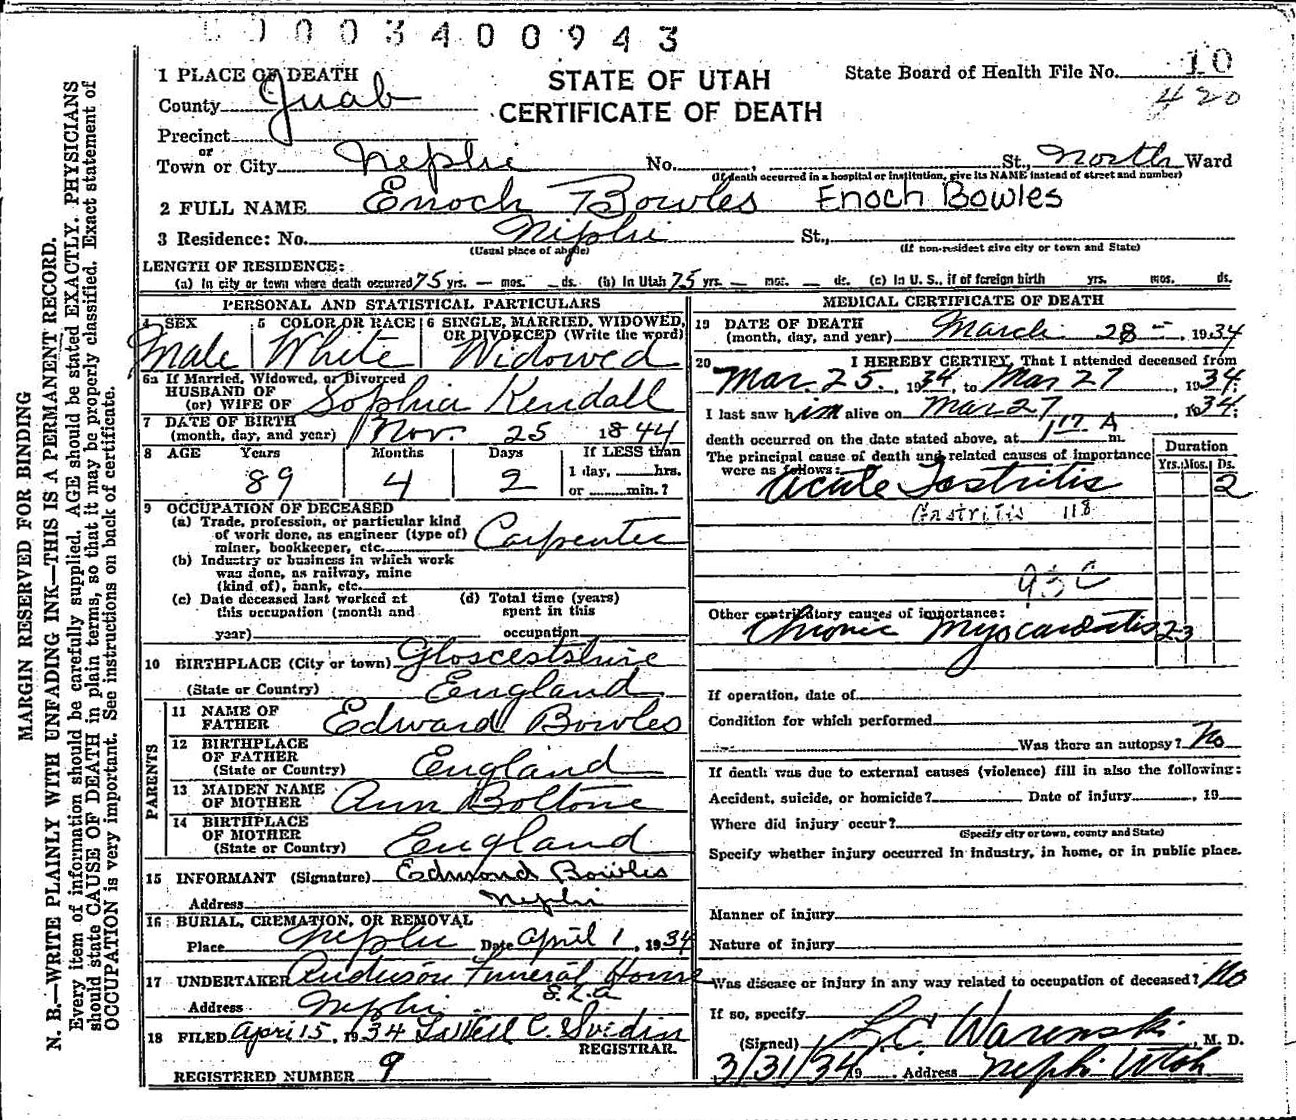 0003400943
STATE OF UTAH
CERTIFICATE OF DEATH
State Board of Health File No. 10
420
1 PLACE OF DEATH
County Juab
Precinct
or
Town or City Nephi No. , St., North Ward
(If death occurred in a hospital or institution, give its NAME instead of street and number)
2 FULL NAME Enoch Bowles Enoch Bowles
3 Residence: No. Nephi St.,
(Usual place of abode) (If non-resident give city or town and State)
LENGTH OF RESIDENCE:
(a) In city or town where death occurred 75 yrs. — mos. — ds. (b) In Utah 75 yrs. — mos. — ds. (c) In U. S., if of foreign birth yrs. mos. ds.
PERSONAL AND STATISTICAL PARTICULARS
4 SEX 5 COLOR OR RACE 6 SINGLE, MARRIED, WIDOWED,
OR DIVORCED (Write the word)
Male White Widowed
6a If Married, Widowed, or Divorced
HUSBAND OF
(or) WIFE OF Sophia Kendall
7 DATE OF BIRTH
(month, day, and year) Nov. 25 1844
8 AGE Years Months Days If LESS than
1 day, hrs.
or min.?
89 4 2
9 OCCUPATION OF DECEASED
(a) Trade, profession, or particular kind
of work done, as engineer (type of)
miner, bookkeeper, etc. Carpenter
(b) Industry or business in which work
was done, as railway, mine
(kind of), bank, etc.
(c) Date deceased last worked at
this occupation (month and
year)
(d) Total time (years)
spent in this
occupation
10 BIRTHPLACE (City or town) Gloscestshire
(State or Country) England
PARENTS
11 NAME OF
FATHER Edward Bowles
12 BIRTHPLACE
OF FATHER
(State or Country) England
13 MAIDEN NAME
OF MOTHER Ann Boltone
14 BIRTHPLACE
OF MOTHER
(State or Country) England
15 INFORMANT (Signature) Edmond Bowles
Address Nephi
16 BURIAL, CREMATION, OR REMOVAL
Place Nephi Date April 1, 1934
17 UNDERTAKER Anderson Funeral Home
Address Nephi
18 FILED April 5, 1934 LaVell C. Svedin
REGISTRAR.
REGISTERED NUMBER 9
MEDICAL CERTIFICATE OF DEATH
19 DATE OF DEATH
(month, day, and year) March 28 — , 1934
20 I HEREBY CERTIFY, That I attended deceased from
Mar. 25. , 1934, to Mar 27 , 1934;
I last saw him alive on Mar 27 , 1934;
death occurred on the date stated above, at 1 17 A m.
The principal cause of death and related causes of importance
were as follows:
Duration
Yrs. Mos. Ds.
Acute Gastritis 2
Gastritis 118
93C
Other contributory causes of importance:
Chronic Myocarditis 23
If operation, date of
Condition for which performed
Was there an autopsy? No
If death was due to external causes (violence) fill in also the following:
Accident, suicide, or homicide? Date of injury , 19
Where did injury occur?
(Specify city or town, county and State)
Specify whether injury occurred in industry, in home, or in public place.
Manner of injury
Nature of injury
Was disease or injury in any way related to occupation of deceased? No
If so, specify
(Signed) , M. D.
3/31/34 19 Address Nephi Utah
MARGIN RESERVED FOR BINDING
N. B.—WRITE PLAINLY WITH UNFADING INK—THIS IS A PERMANENT RECORD.
Every item of information should be carefully supplied. AGE should be stated EXACTLY. PHYSICIANS
should state CAUSE OF DEATH in plain terms, so that it may be properly classified. Exact statement of
OCCUPATION is very important. See instructions on back of certificate.